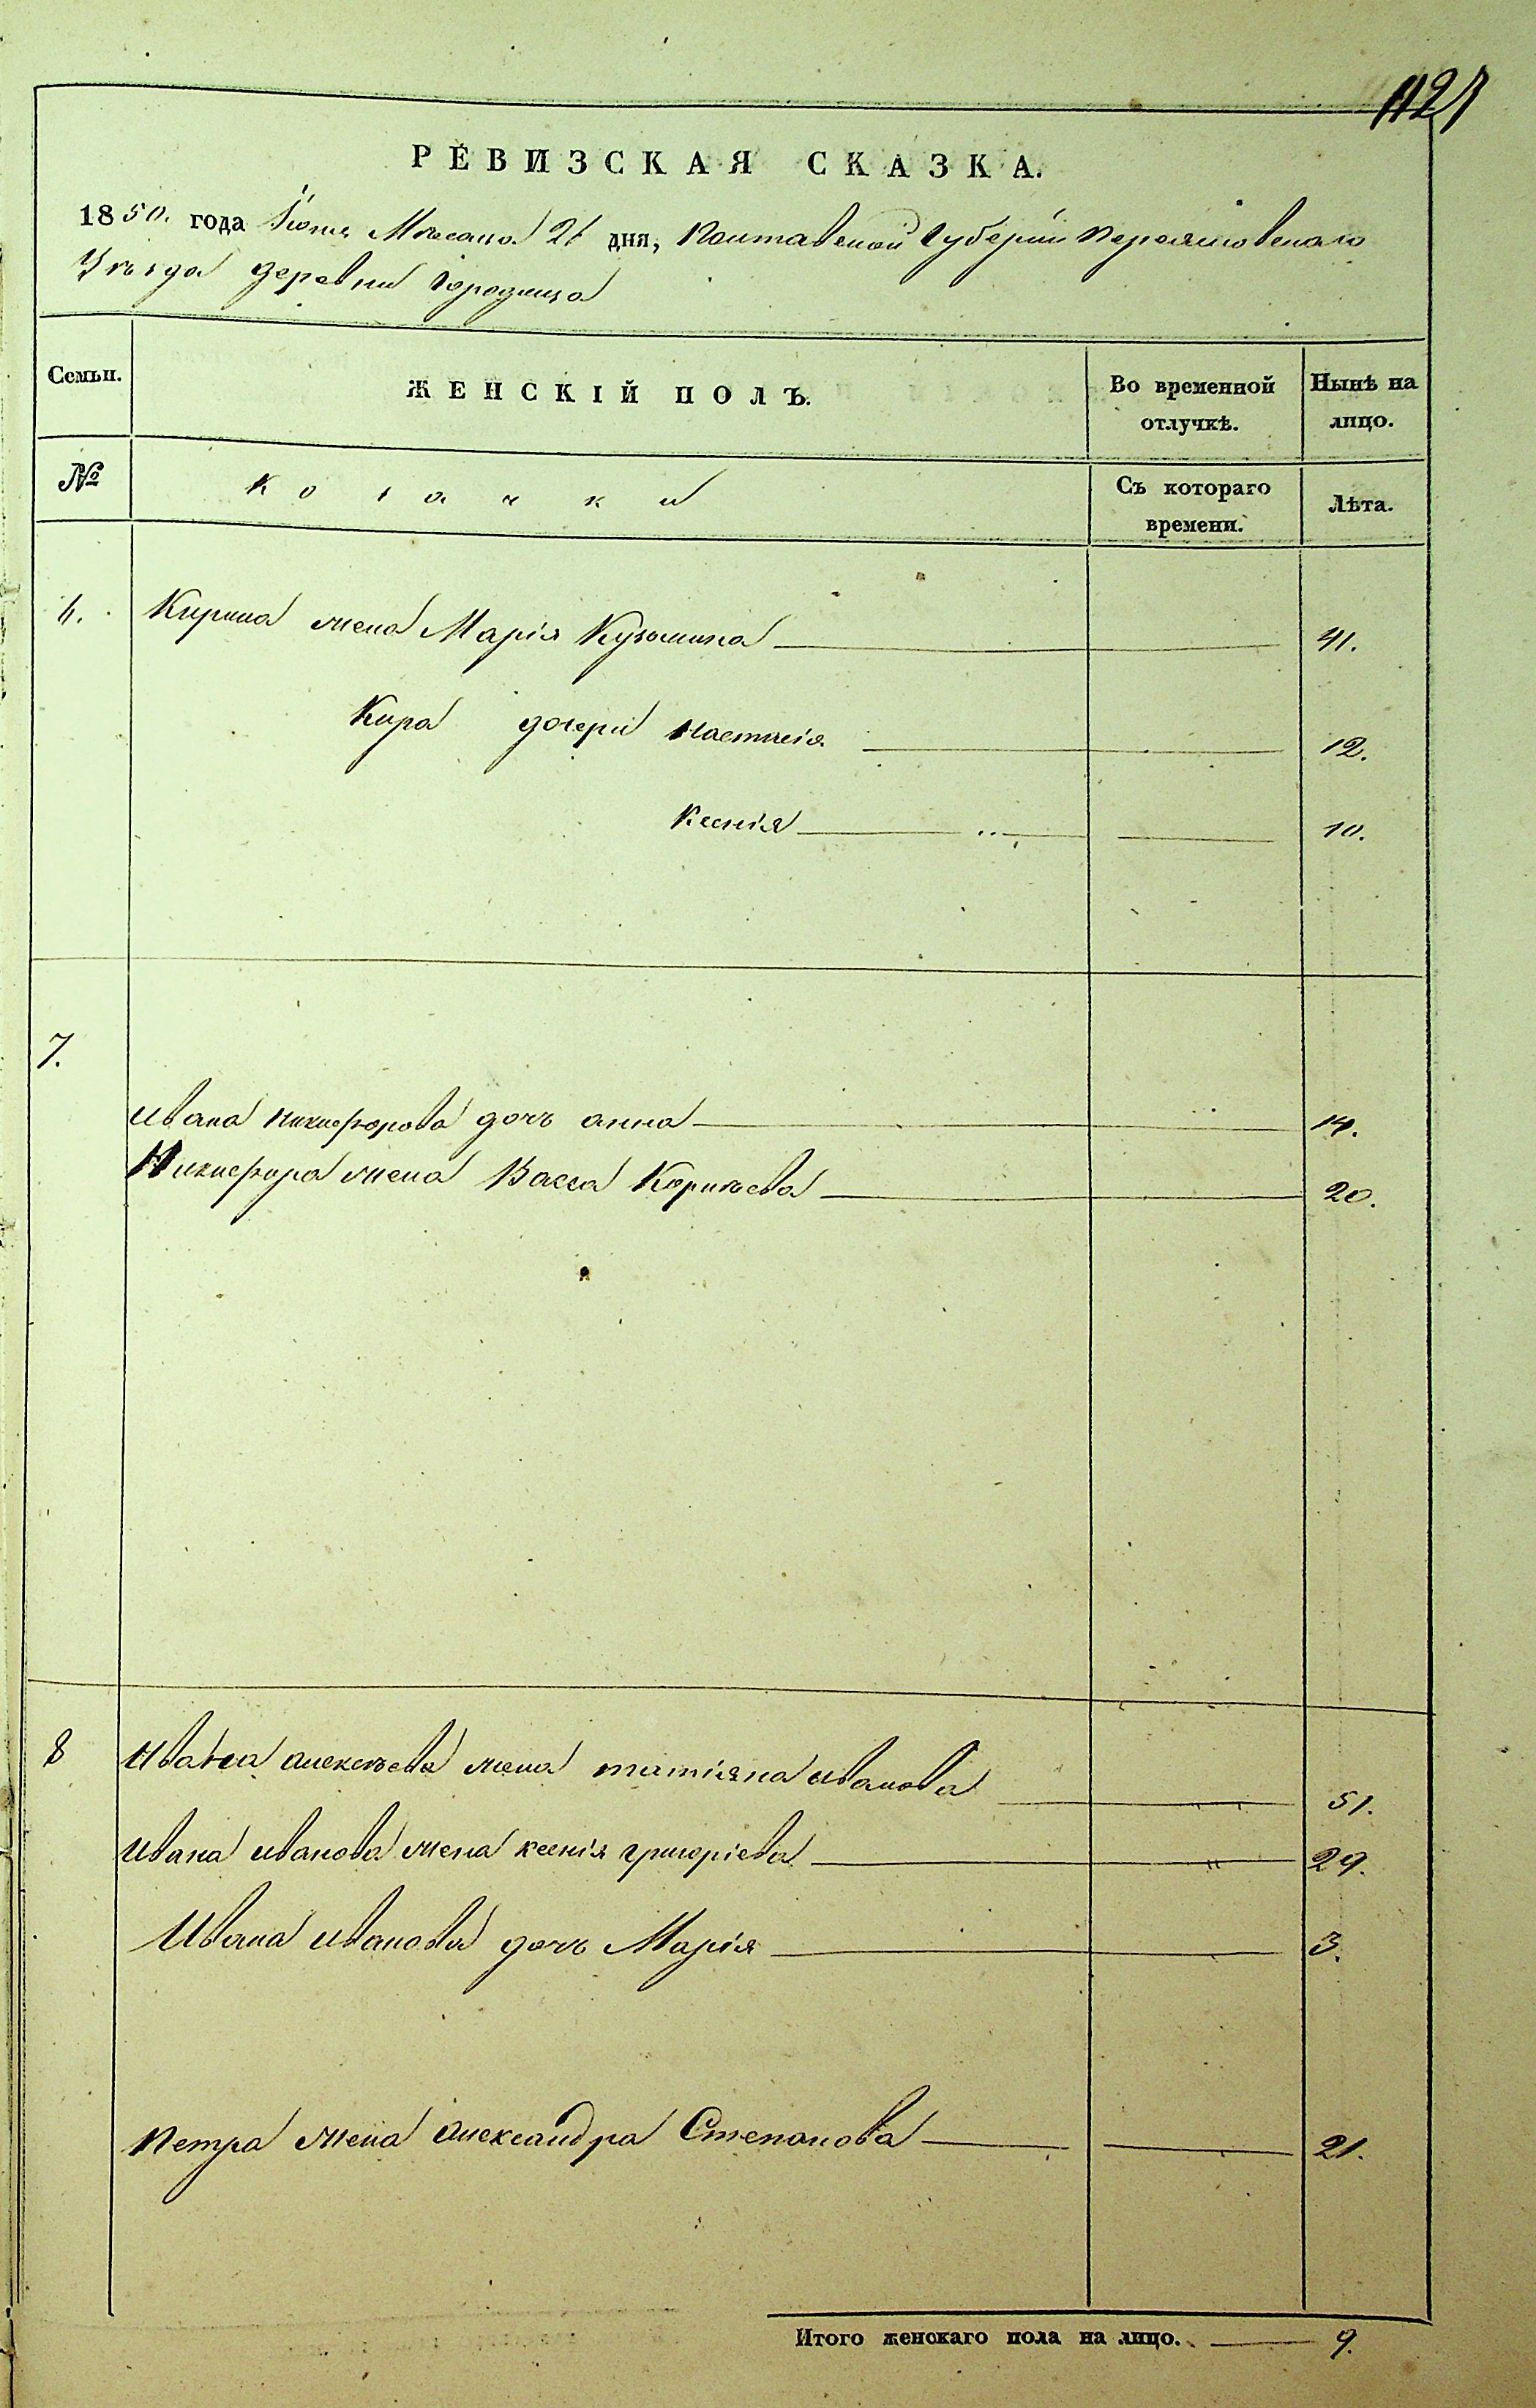 1121
РЕВИЗСКАЯ СКАЗКА.
1850. года Іюня Мѣсяца 21 дня, Полтавской Губерніи Переяловскаго
Уѣзда деревни Городища
Семьи. ЖЕНСКІЙ ПОЛЪ. Во временной отлучкѣ. Нынѣ на лицо.
№ Козачки Съ котораго времени. Лѣта.
6. Кирила жена Марія Кузьмина 41.
Кира дочери Настасія 12.
Ксенія 10.
7.
Ивана Никифорова дочь Анна 14.
Никифора жена Васса Корнѣева 20.
8 Ивана Алексѣева жена Татіяна Иванова 51.
Ивана Иванова жена Ксенія Григоріева 29.
Ивана Иванова дочь Марія 3.
Петра жена Александра Степанова 21.
Итого женскаго пола на лицо. 9.